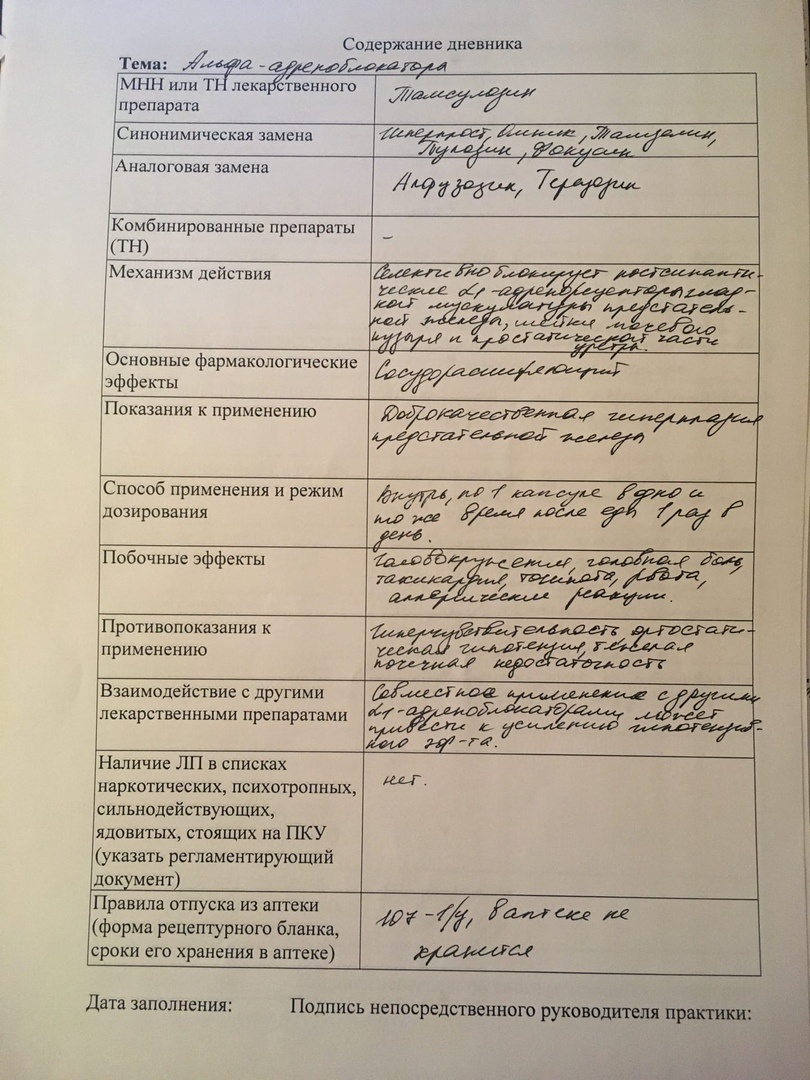 Содержание дневника
Тема: Альфа-адреноблокаторы
МНН или ТН лекарственного
препарата
Тамсулозин
Синонимическая замена
Гиперпрост, Омник, Тамзелин,
Тулозин, Фокусин
Аналоговая замена
Алфузозин, Теразозин
Комбинированные препараты
(ТН)
–
Механизм действия
Селективно блокирует постсинапти-
ческие α1-адренорецепторы глад-
кой мускулатуры предстатель-
ной железы, шейки мочевого
пузыря и простатической части
уретры.
Основные фармакологические
эффекты
Сосудорасширяющий
Показания к применению
Доброкачественная гиперплазия
предстательной железы
Способ применения и режим
дозирования
Внутрь, по 1 капсуле в одно и
то же время после еды 1 раз в
день.
Побочные эффекты
Головокружения, головная боль,
тахикардия, тошнота, рвота,
аллергические реакции.
Противопоказания к
применению
Гиперчувствительность, ортостати-
ческая гипотензия, тяжелая
почечная недостаточность
Взаимодействие с другими
лекарственными препаратами
Совместное применение с другими
α1-адреноблокаторами может
привести к усилению гипотензив-
ного эф-та.
Наличие ЛП в списках
наркотических, психотропных,
сильнодействующих,
ядовитых, стоящих на ПКУ
(указать регламентирующий
документ)
нет.
Правила отпуска из аптеки
(форма рецептурного бланка,
сроки его хранения в аптеке)
107-1/у, в аптеке не
хранится
Дата заполнения: Подпись непосредственного руководителя практики: